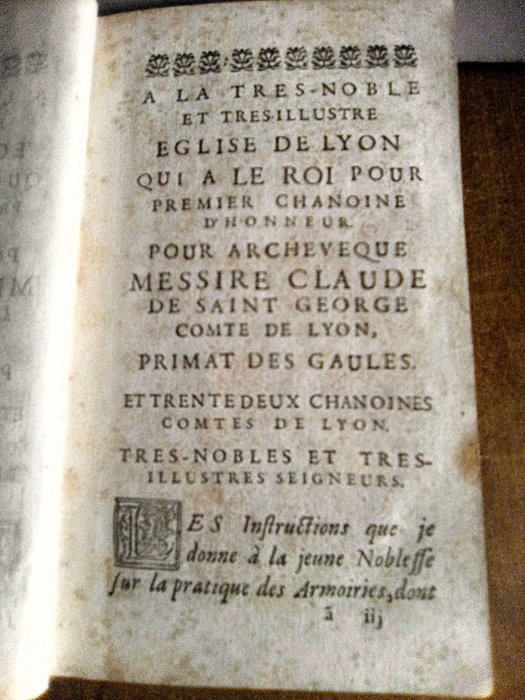 A LA TRES-NOBLE
ET TRES-ILLUSTRE
EGLISE DE LYON
QUI A LE ROI POUR
PREMIER CHANOINE
D'HONNEUR.
POUR ARCHEVEQUE
MESSIRE CLAUDE
DE SAINT GEORGE
COMTE DE LYON,
PRIMAT DES GAULES.
ET TRENTE DEUX CHANOINES
COMTES DE LYON.
TRES-NOBLES ET TRES-
ILLUSTRES SEIGNEURS.
LES Inſtructions que je
donne à la jeune Nobleſſe
ſur la pratique des Armoiries, dont
ã iij